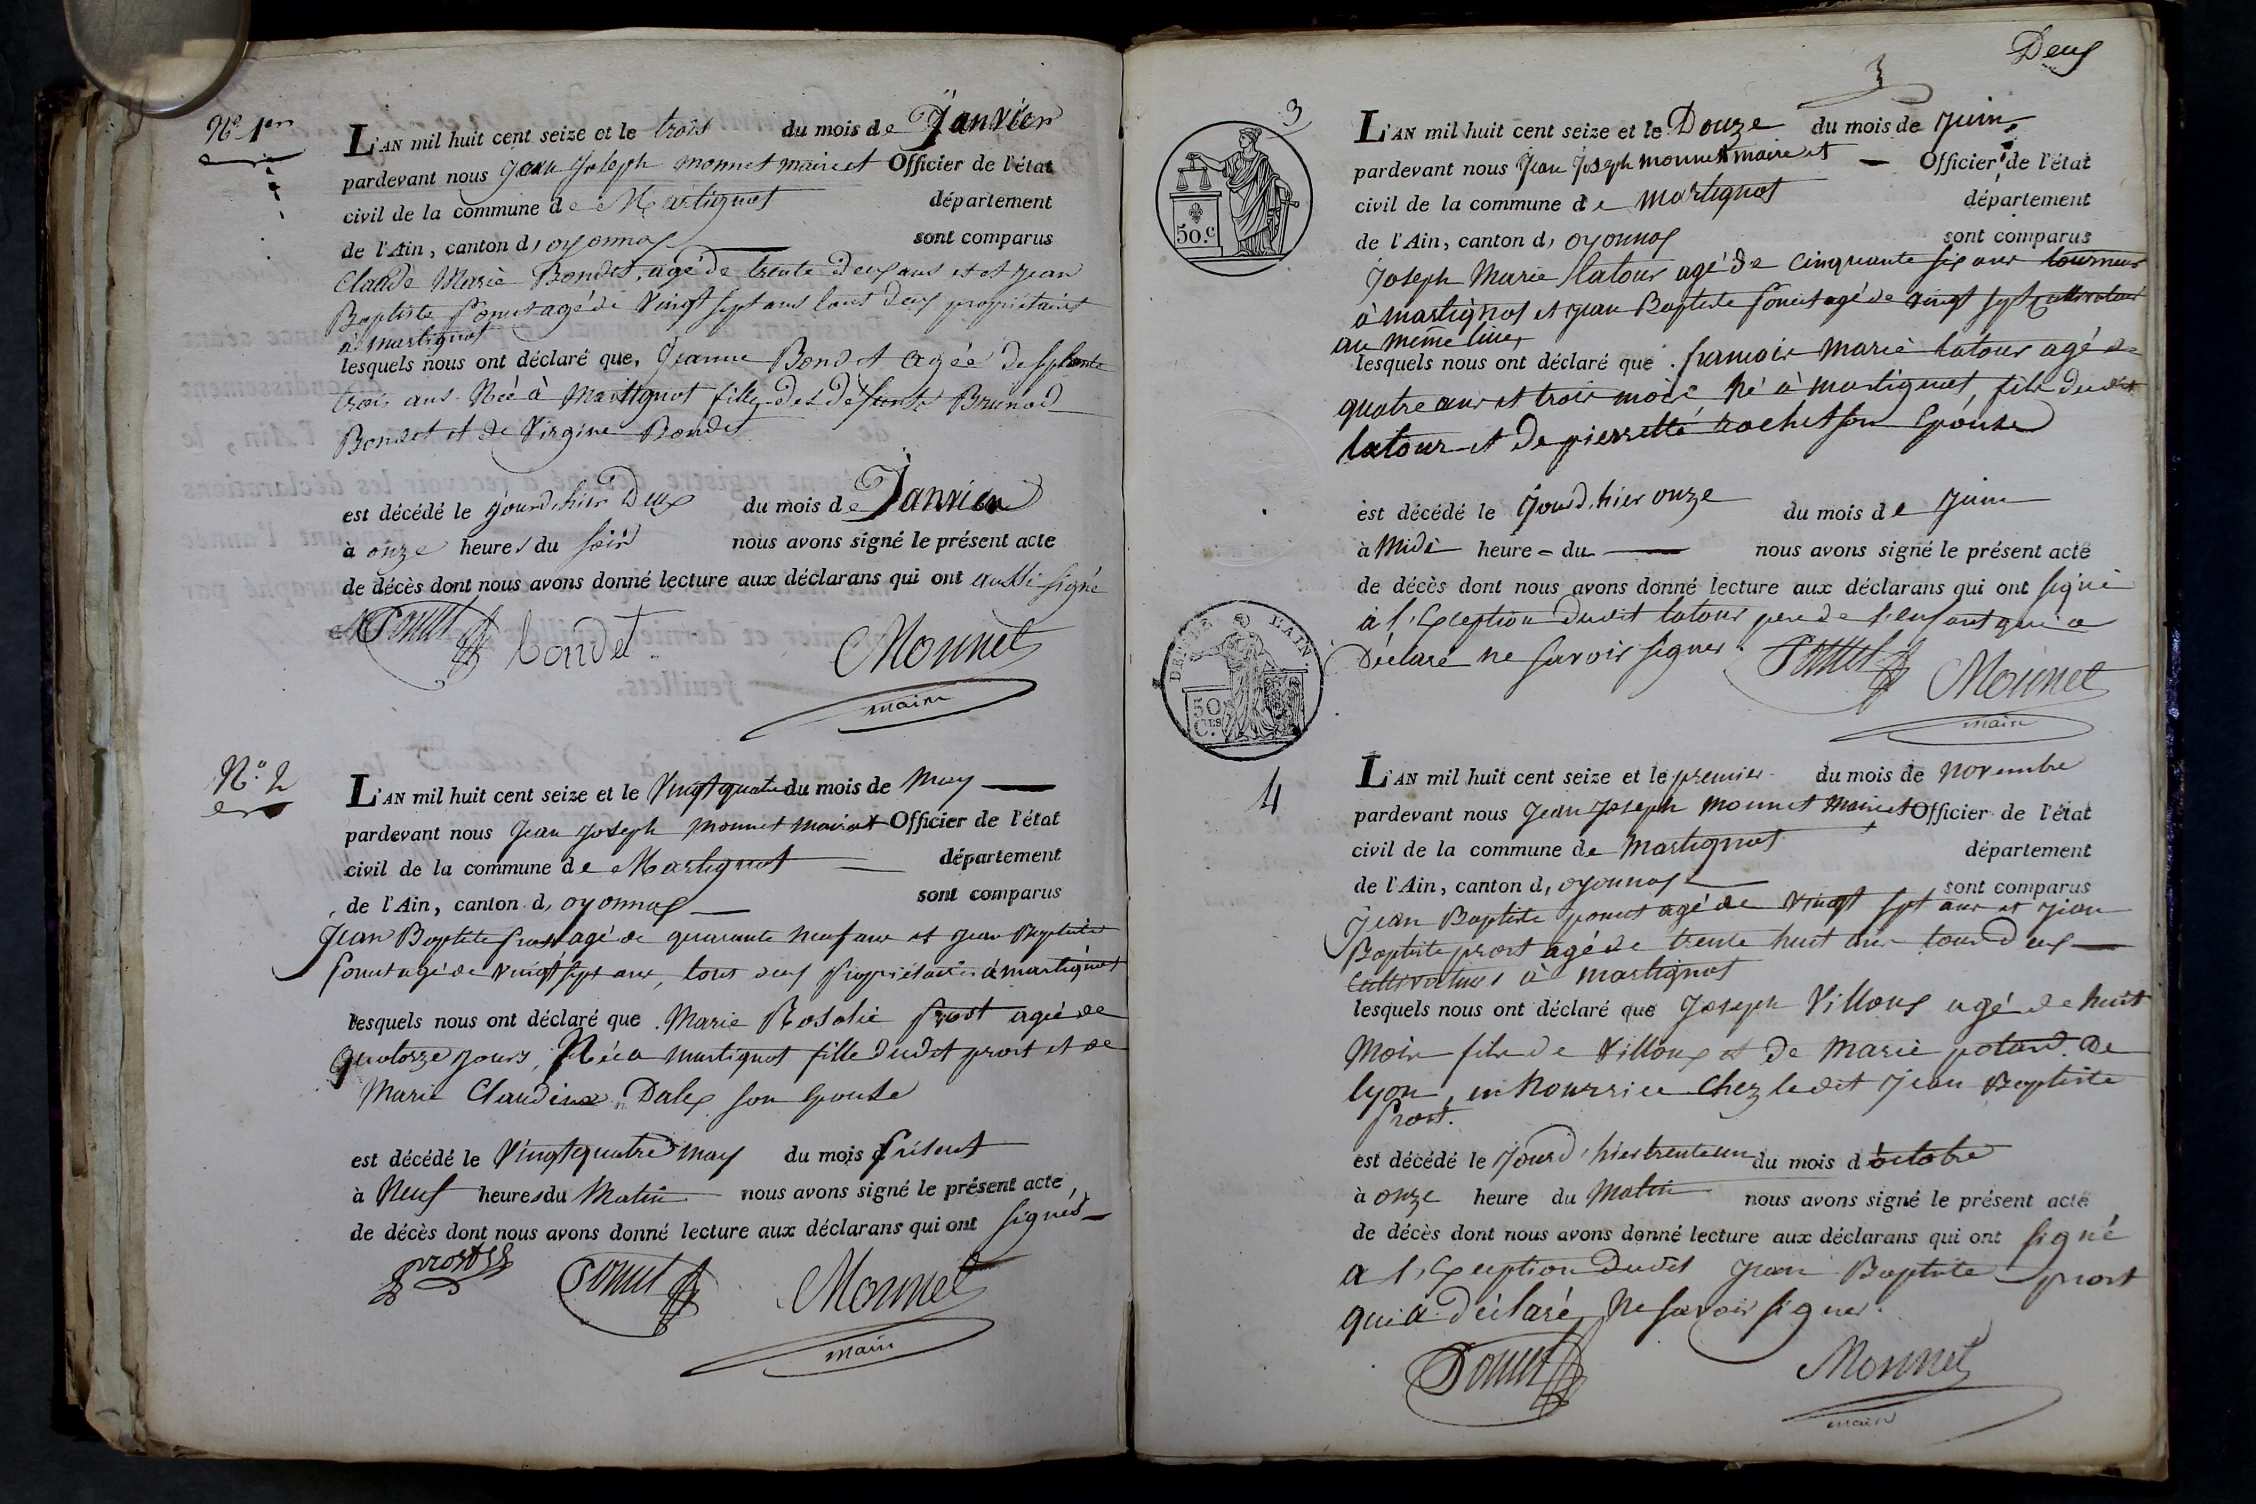 N.º 1er
L'AN mil huit cent seize et le trois du mois de Janvier
pardevant nous Jean Joseph monnet maire et Officier de l'état
civil de la commune de Martignat département
de l'Ain, canton d, oyonnax sont comparus
Claude Marie Bondet, agé de trente deux ans et et jean
Baptiste ponut agé de vingt sept ans tous deux propriétaires
à martignat
lesquels nous ont déclaré que, Jeanne Bondet agée de septante
trois ans Née à Martignat fille des défunts Brunod
Bondet et de Virgine Bondet
est décédé le jourd'hier Deux du mois de Janvier
à onze heures du soir nous avons signé le présent acte
de décès dont nous avons donné lecture aux déclarans qui ont aussi signé
Ponut bondet Monnet
maire
N.º 2
L'AN mil huit cent seize et le Vingt quatre du mois de may
pardevant nous Jean Joseph monnet maire et Officier de l'état
civil de la commune de Martignat département
de l'Ain, canton d, oyonnax sont comparus
Jean Baptiste prost agé de quarante neuf ans et jean Baptiste
Ponut agé de vingt sept ans, tous deux propriétaires à martignat
lesquels nous ont déclaré que Marie Rosalie prost agée de
quatorze jours, Née a martignat fille dudit prost et de
Marie Claudine Dalex son épouse
est décédé le Vingt quatre may du mois présent
à Neuf heures du Matin nous avons signé le présent acte
de décès dont nous avons donné lecture aux déclarans qui ont signés
prost Ponut Monnet
maire
Deux
3
3
50.c
L'AN mil huit cent seize et le Douze du mois de juin
pardevant nous Jean Joseph monnet maire et Officier de l'état
civil de la commune de martignat département
de l'Ain, canton d, oyonnax sont comparus
Joseph Marie latour agé de cinquante six ans tourneur
à martignat et jean Baptiste ponut agé de vingt sept cultivateur
au même lieu,
lesquels nous ont déclaré que francois marie latour agé de
quatre ans et trois mois Né à martignat, fils dudit
latour et de pierrette rochet son Epouse
est décédé le Jourd'hier onze du mois de juin
à Midi heure du nous avons signé le présent acte
de décès dont nous avons donné lecture aux déclarans qui ont signé
à l'Exception dudit latour pere de l'enfant qui a
Déclaré ne savoir signer. Ponut Monnet
maire
DE L'AIN.
50
C.ES
4
L'AN mil huit cent seize et le premier du mois de novembre
pardevant nous Jean Joseph monnet maire et Officier de l'état
civil de la commune de martignat département
de l'Ain, canton d, oyonnax sont comparus
Jean Baptiste ponut agé de vingt sept ans et jean
Baptiste prost agé de trente huit ans tous deux
cultivateurs à martignat
lesquels nous ont déclaré que Joseph Villoux agé de huit
Mois fils de Villoux et de Marie potard de
lyon, en Nourrice chez ledit Jean Baptiste
Prost.
est décédé le jourd'hier trente un du mois d'octobre
à onze heure du Matin nous avons signé le présent acte
de décès dont nous avons donné lecture aux déclarans qui ont signé
a l'Exception dudit Jean Baptiste prost
qui a déclaré Ne savoir signer.
Ponut Monnet
maire